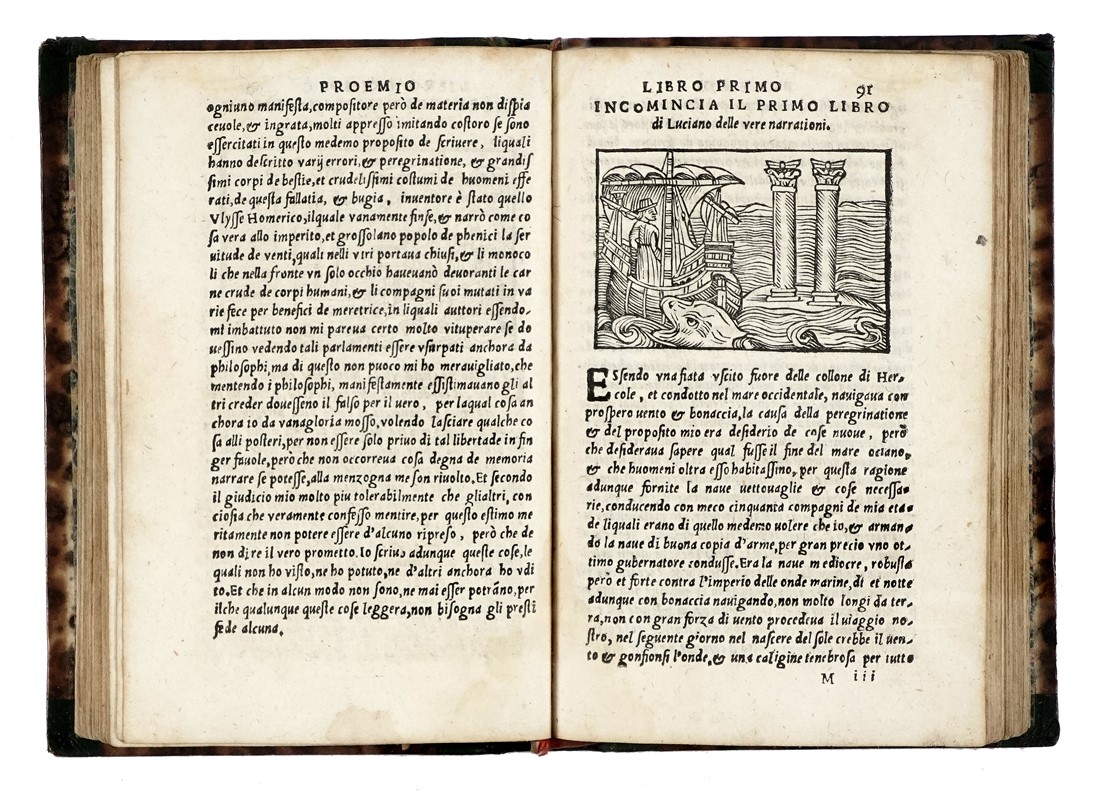 PROEMIO
ogniuno manifesta,compositore però de materia non dispia
ceuole,& ingrata,molti appresso imitando costoro se sono
essercitati in questo medemo proposito de scriuere, liquali
hanno descritto varij errori,& peregrinatione, & grandis
simi corpi de bestie,et crudelissimi costumi de huomeni effe
rati,de questa fallatia, & bugia, inuentore è stato quello
Vlysse Homerico,ilquale vanamente finse,& narrò come co
sa vera allo imperito,et grossolano popolo de phenici la ser
uitude de venti,quali nelli vtri portaua chiusi,& li monoco
li che nella fronte vn solo occhio haueuanò deuoranti le car
ne crude de corpi humani,& li compagni suoi mutati in va
rie fece per benefici de meretrice,in liquali auttori essendo-
mi imbattuto non mi pareua certo molto vituperare se do
uessino vedendo tali parlamenti essere vsurpati anchora da
philosophi,ma di questo non puoco mi ho merauigliato,che
mentendo i philosophi, manifestamente essistimauano gli al
tri creder douesseno il falso per il uero, per laqual cosa an
chora io da vanagloria mosso,volendo lasciare qualche co
sa alli posteri,per non essere solo priuo di tal libertade in fin
ger fauole,però che non occorreua cosa degna de memoria
narrare se potesse,alla menzogna me son riuolto.Et secondo
il giudicio mio molto piu tolerabilmente che glialtri, con
ciosia che veramente confesso mentire,per questo estimo me
ritamente non potere essere d'alcuno ripreso, però che de
non dire il vero prometto.Io scriuo adunque queste cose,le
quali non ho visto,ne ho potuto,ne d'altri anchora ho vdi
to.Et che in alcun modo non sono,ne mai esser potrāno,per
ilche qualunque queste cose leggera,non bisogna gli presti
fede alcuna.
LIBRO PRIMO 91
INCOMINCIA IL PRIMO LIBRO
di Luciano delle vere narrationi.
ESsendo vna fiata vscito fuore delle collone di Her-
cole, et condotto nel mare occidentale, nauigaua con
prospero uento & bonaccia,la causa della peregrinatione
& del proposito mio era desiderio de cose nuoue, però
che desideraua sapere qual fusse il fine del mare oceano,
& che huomeni oltra esso habitassino, per questa ragione
adunque fornite la naue uettouaglie & cose necessa-
rie,conducendo con meco cinquanta compagni de mia eta-
de liquali erano di quello medemo uolere che io,& arman-
do la naue di buona copia d'arme,per gran precio vno ot-
timo gubernatore condusse.Era la naue mediocre, robusta
però et forte contra l'imperio delle onde marine,dí et notte
adunque con bonaccia nauigando,non molto longi da ter-
ra,non con gran forza di uento procedeua il uiaggio no-
stro, nel seguente giorno nel nascere del sole crebbe il uen-
to & gonfionsi l'onde,& una caligine tenebrosa per tutto
M iii